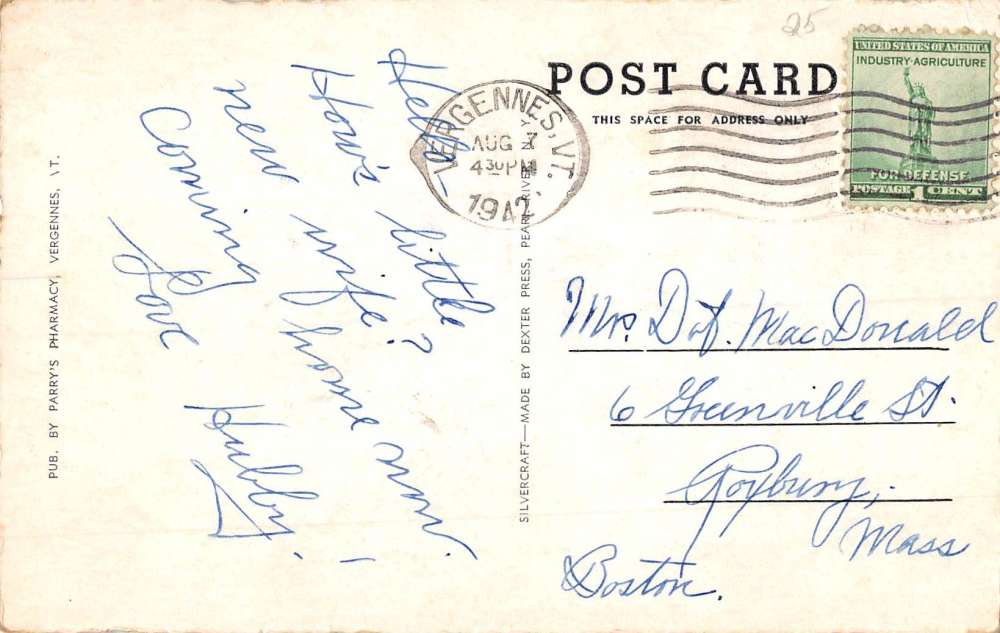 25
POST CARD
THIS SPACE FOR ADDRESS ONLY
UNITED STATES OF AMERICA
INDUSTRY·AGRICULTURE
FOR DEFENSE
POSTAGE 1 CENT
VERGENNES, VT.
AUG 7
4 30 PM
1942
Hello—
How's little
new wife?
Coming home now
Love Hubby
Mrs. MacDonald
6 Greenville St.
Roxbury,
Mass
Boston.
PUB. BY PARRY'S PHARMACY, VERGENNES, VT.
SILVERCRAFT—MADE BY DEXTER PRESS, PEARL RIVER, N. Y.